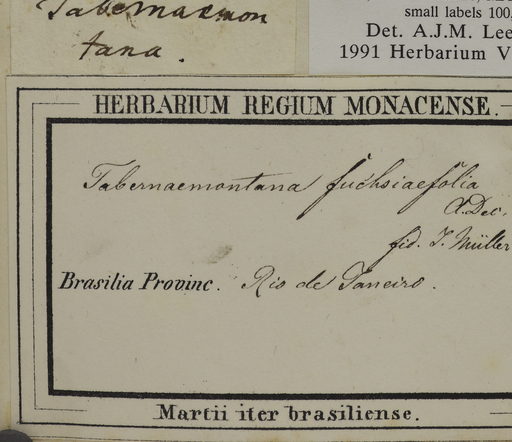 Tabernaemon
tana.
small labels 100,
Det. A.J.M. Lee
1991 Herbarium V
HERBARIUM REGIUM MONACENSE.
Tabernaemontana fuchsiaefolia
A.Dec.
fid. J. Müller
Brasilia Provinc. Rio de Janeiro.
Martii iter brasiliense.